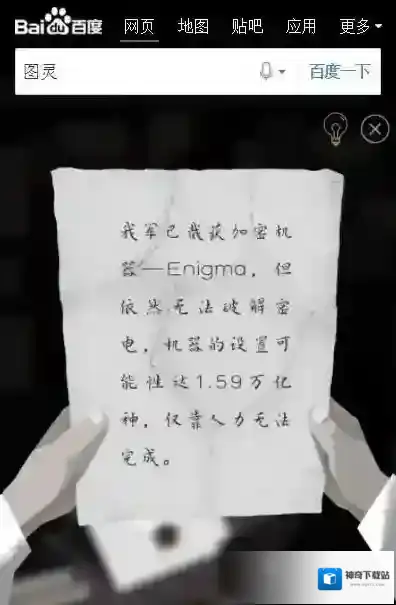 Bai百度 网页 地图 贴吧 应用 更多
图灵 百度一下
我军已截获加密机
器—Enigma，但
依然无法破解密
电，机器的设置可
能性达1.59万亿
种，仅靠人力无法
完成。
神奇下载站